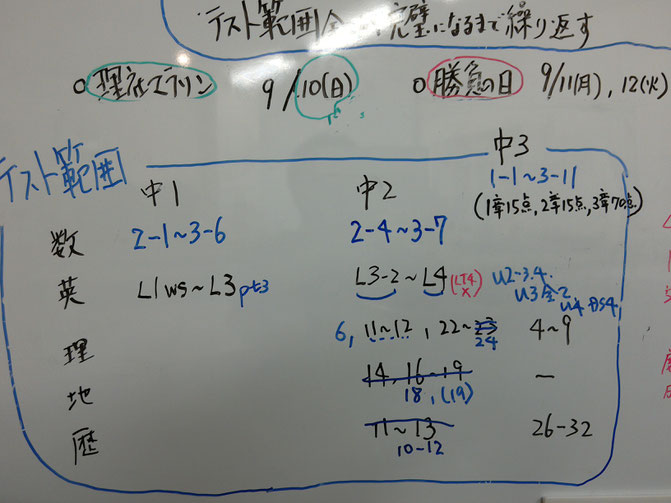 テスト範囲全て完璧になるまで繰り返す
○理社マラソン 9/10(日) ○勝負の日 9/11(月), 12(火)
テスト範囲 中1 中2 中3
1-1~3-11
(1章15点, 2章15点, 3章70点)
数 2-1~3-6 2-4~3-7
英 L1ws~L3pt3 L3-2~L4(LT4×) U2-3.4.
U3全て
U4
理 6, 11~12, 22~23 4~9
24
地 14, 16~19 —
18, (19)
歴 11~13 26-32
10-12